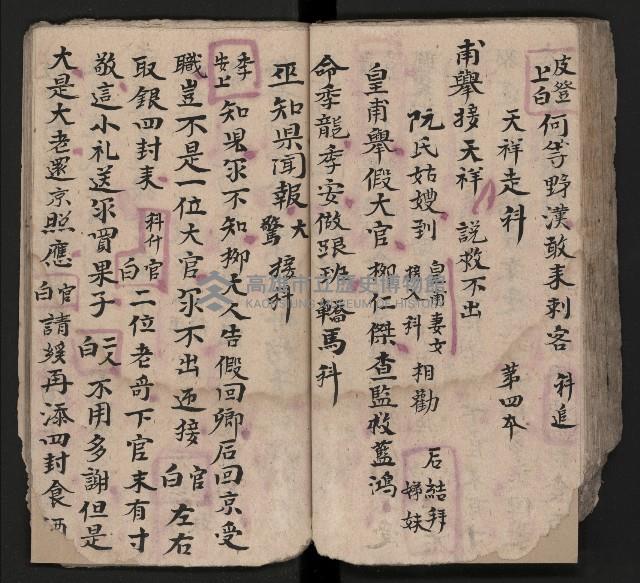 皮登上白 何等野漢敢来刺客 科追
天祥走科 第四本
甫舉接天祥 説救不出
阮氏姑嫂到 皇甫妻女接科 相勸 后結拜姊妹
皇甫舉假大官 柳仁傑查監救藍鴻
命季龍季安做跟班轎馬科
巫知県聞報 大驚 接科
季安上 知県尔不知柳大人告假回鄉后回京受
職豈不是一位大官尔不出迎接 官白 左右
取銀四封来 科什 官白 二位老哥下官未有寸
敬這小礼送尔買果子 二人白 不用多謝但是
大是大老還京照應 官白 請緩再添四封食酒
高雄市立歷史博物館
KAOHSIUNG MUSEUM OF HISTORY